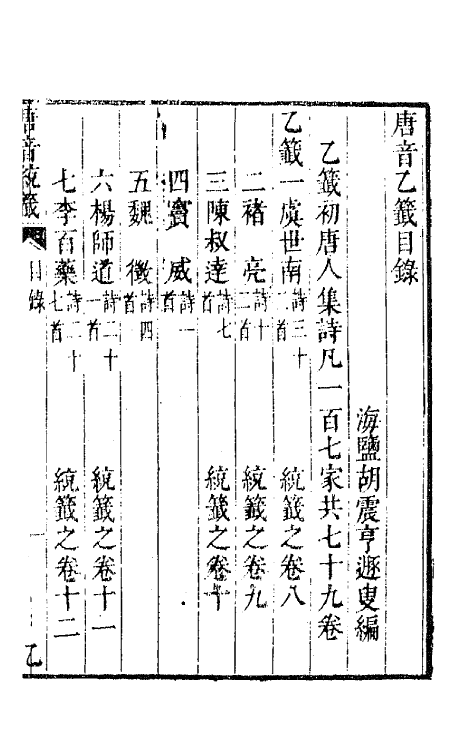 唐音乙籤目錄
海鹽胡震亨遯叟編
乙籤初唐人集詩凡一百七家共七十九卷
乙籤一虞世南詩三十二首 統籤之卷八
二褚亮詩十二首 統籤之卷九
三陳叔達詩七首 統籤之卷十
四竇威詩一首
五魏徵詩四首
六楊師道詩二十一首 統籤之卷十一
七李百藥詩二十七首 統籤之卷十二
唐音統籤 目錄 一 乙